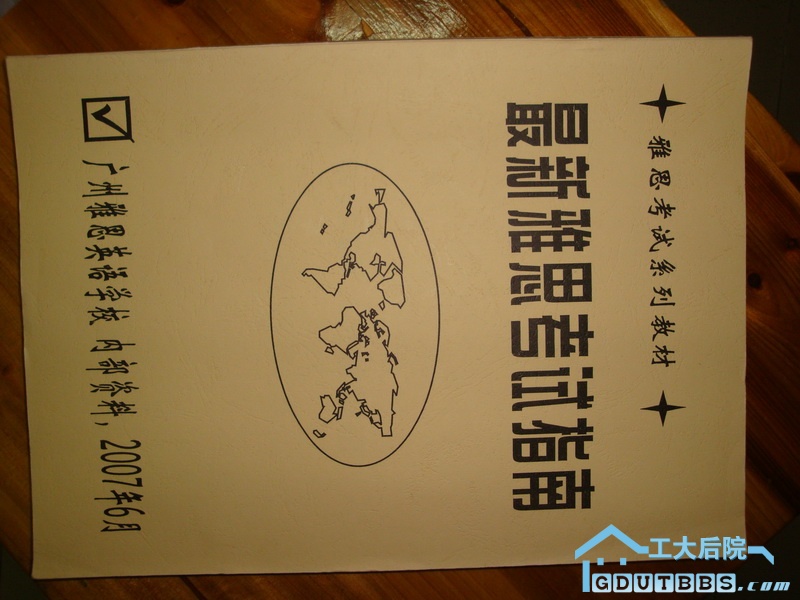 雅思考试系列教材
最新雅思考试指南
广州雅思英语学校 内部资料，2007年6月
工大后院
GDUTBBS.com